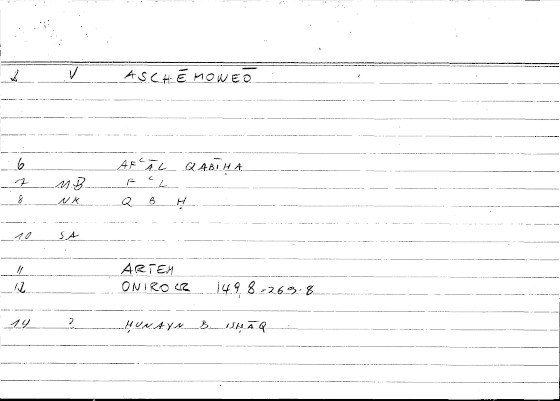 2 V ASCHĒMONEŌ
6 AFʿĀL QABĪḤA
7 MB F ʿ L
8 NK Q B Ḥ
10 SA
11 ARTEM
12 ONIROCR 149,8 = 269,8
14 ? ḤUNAYN B. ISḤĀQ